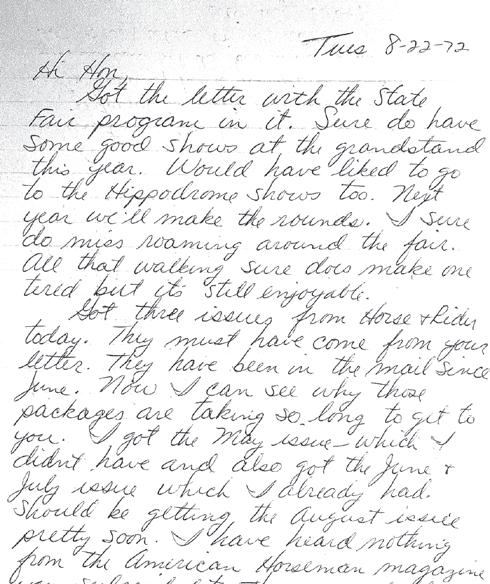 Tues 8-22-72
Hi Hon,
Got the letter with the State
Fair program in it. Sure do have
some good shows at the grandstand
this year. Would have liked to go
to the Hippodrome shows too. Next
year we'll make the rounds. I sure
do miss roaming around the fair.
All that walking sure does make one
tired but it's still enjoyable.
Got three issues from Horse & Rider
today. They must have come from your
letter. They have been in the mail since
June. Now I can see why those
packages are taking so long to get to
you. I got the May issue - which I
didn't have and also got the June &
July issue which I already had.
Should be getting the August issue
pretty soon. I have heard nothing
from the American Horseman magazine